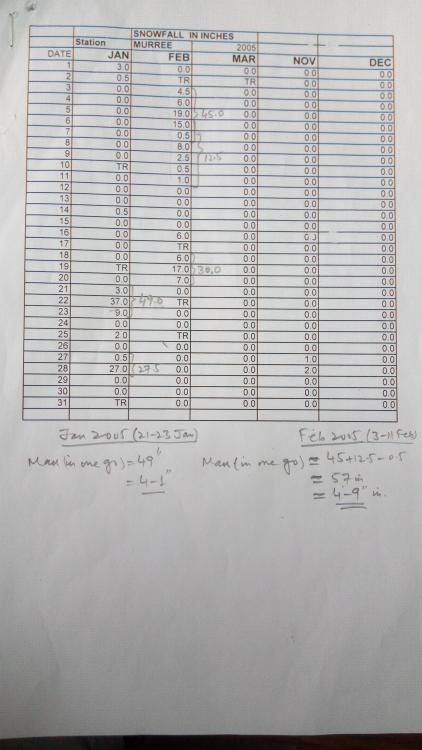 SNOWFALL IN INCHES
Station MURREE 2005
DATE JAN FEB MAR NOV DEC
1 3.0 0.0 0.0 0.0 0.0
2 0.5 TR TR 0.0 0.0
3 0.0 4.5 0.0 0.0 0.0
4 0.0 6.0 0.0 0.0 0.0
5 0.0 19.0 45.0 0.0 0.0 0.0
6 0.0 15.0 0.0 0.0 0.0
7 0.0 0.5 0.0 0.0 0.0
8 0.0 8.0 0.0 0.0 0.0
9 0.0 2.5 12.5 0.0 0.0 0.0
10 TR 0.5 0.0 0.0 0.0
11 0.0 1.0 0.0 0.0 0.0
12 0.0 0.0 0.0 0.0 0.0
13 0.0 0.0 0.0 0.0 0.0
14 0.5 0.0 0.0 0.0 0.0
15 0.0 0.0 0.0 0.0 0.0
16 0.0 6.0 0.0 0.0 0.0
17 0.0 TR 0.0 0.0 0.0
18 0.0 6.0 0.0 0.0 0.0
19 TR 17.0 30.0 0.0 0.0 0.0
20 0.0 7.0 0.0 0.0 0.0
21 3.0 0.0 0.0 0.0 0.0
22 37.0 49.0 TR 0.0 0.0 0.0
23 9.0 0.0 0.0 0.0 0.0
24 0.0 0.0 0.0 0.0 0.0
25 2.0 TR 0.0 0.0 0.0
26 0.0 0.0 0.0 0.0 0.0
27 0.5 0.0 0.0 1.0 0.0
28 27.0 27.5 0.0 0.0 2.0 0.0
29 0.0 0.0 0.0 0.0 0.0
30 0.0 0.0 0.0 0.0 0.0
31 TR 0.0 0.0 0.0 0.0
Jan 2005 (21-23 Jan) Feb 2005 (3-11 Feb)
Max (in one go) = 49" Max (in one go) = 45+12.5-0.5
= 4-1" = 57 in
= 4-9" in.